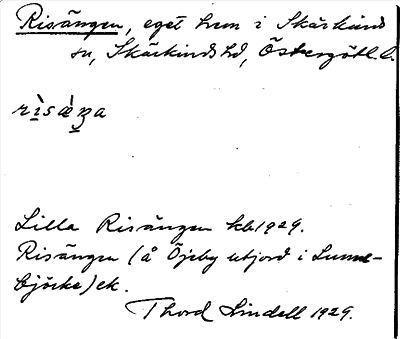 Risängen, eget hem i Skärkinds
sn, Skärkinds hd, Östergötl. l.
rìsæ̀ŋa
Lilla Risängen kb 1929.
Risängen (å Öjeby utjord i Lunne-
bjöcke) ek.
Thord Lindell 1929.